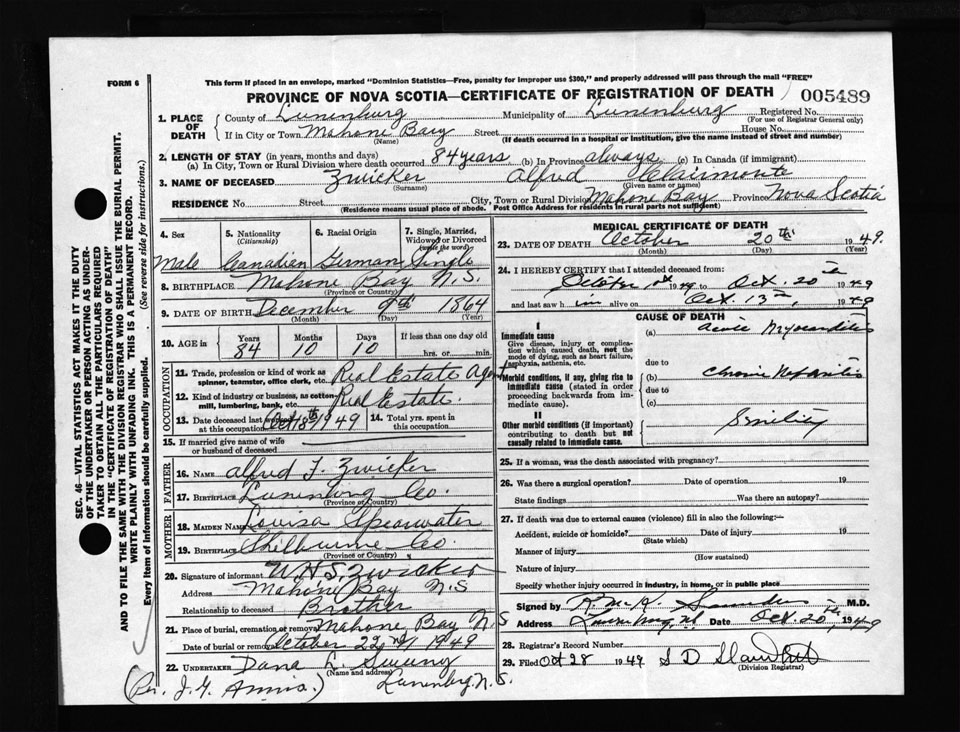 FORM 6
This form if placed in an envelope, marked "Dominion Statistics—Free, penalty for improper use $300," and properly addressed will pass through the mail "FREE"
PROVINCE OF NOVA SCOTIA—CERTIFICATE OF REGISTRATION OF DEATH
005489
1. PLACE OF DEATH
County of Lunenburg Municipality of Lunenburg Registered No.
(For use of Registrar General only)
If in City or Town Mahone Bay Street House No.
(Name) (If death occurred in a hospital or institution, give the name instead of street and number)
2. LENGTH OF STAY (in years, months and days)
(a) In City, Town or Rural Division where death occurred 84 years (b) In Province always (c) In Canada (if immigrant)
3. NAME OF DECEASED Zwicker Alfred Clairmonte
(Surname) (Given name or names)
RESIDENCE No. Street City, Town or Rural Division Mahone Bay Province Nova Scotia
(Residence means usual place of abode. Post Office Address for residents in rural parts not sufficient)
4. Sex 5. Nationality 6. Racial Origin 7. Single, Married, Widowed or Divorced
(Citizenship) (write the word)
Male Canadian German Single
8. BIRTHPLACE Mahone Bay N.S.
(Province or Country)
9. DATE OF BIRTH December 9th 1864
(Month) (Day) (Year)
10. AGE in Years Months Days If less than one day old
84 10 10 hrs. or min.
OCCUPATION
11. Trade, profession or kind of work as spinner, teamster, office clerk, etc. Real Estate Agent
12. Kind of industry or business, as cotton-mill, lumbering, bank, etc. Real Estate.
13. Date deceased last worked at this occupation Oct 8th 1949 14. Total yrs. spent in this occupation
15. If married give name of wife or husband of deceased
FATHER
16. NAME Alfred J. Zwicker
17. BIRTHPLACE Lunenburg Co.
(Province or Country)
MOTHER
18. MAIDEN NAME Louisa Spearwater
19. BIRTHPLACE Shelburne Co.
(Province or Country)
20. Signature of informant W.H.S. Zwicker
Address Mahone Bay N.S
Relationship to deceased Brother
21. Place of burial, cremation or removal Mahone Bay N.S
Date of burial or removal October 22nd 1949
22. UNDERTAKER Dana L. Sweny
(Name and address)
(Per. J. G. Annis.) Lunenburg N.S.
MEDICAL CERTIFICATE OF DEATH
23. DATE OF DEATH October 20th 1949.
(Month) (Day) (Year)
24. I HEREBY CERTIFY that I attended deceased from:
October 1949 to Oct. 20th 1949
and last saw him alive on Oct. 13th, 1949
CAUSE OF DEATH
I
Immediate cause
Give disease, injury or complication which caused death, not the mode of dying, such as heart failure, asphyxia, asthenia, etc.
(a) Acute Myocarditis
due to
Morbid conditions, if any, giving rise to immediate cause (stated in order proceeding backwards from immediate cause).
(b) Chronic Nephritis
due to
(c)
II
Other morbid conditions (if important) contributing to death but not causally related to immediate cause.
Senility
25. If a woman, was the death associated with pregnancy?
26. Was there a surgical operation? Date of operation 19
State findings Was there an autopsy?
27. If death was due to external causes (violence) fill in also the following:—
Accident, suicide or homicide? Date of injury 19
(State which)
Manner of injury
(How sustained)
Nature of injury
Specify whether injury occurred in industry, in home, or in public place
Signed by R McK. Saunders M.D.
Address Lunenburg, N.S Date Oct. 20th, 1949
28. Registrar's Record Number
29. Filed Oct 28 1949 S D
(Division Registrar)
SEC. 46—VITAL STATISTICS ACT MAKES IT THE DUTY
OF THE UNDERTAKER OR PERSON ACTING AS UNDERTAKER TO OBTAIN ALL THE PARTICULARS REQUIRED
IN THE "CERTIFICATE OF REGISTRATION OF DEATH"
AND TO FILE THE SAME WITH THE DIVISION REGISTRAR WHO SHALL ISSUE THE BURIAL PERMIT.
WRITE PLAINLY WITH UNFADING INK. THIS IS A PERMANENT RECORD.
Every item of Information should be carefully supplied. (See reverse side for instructions.)